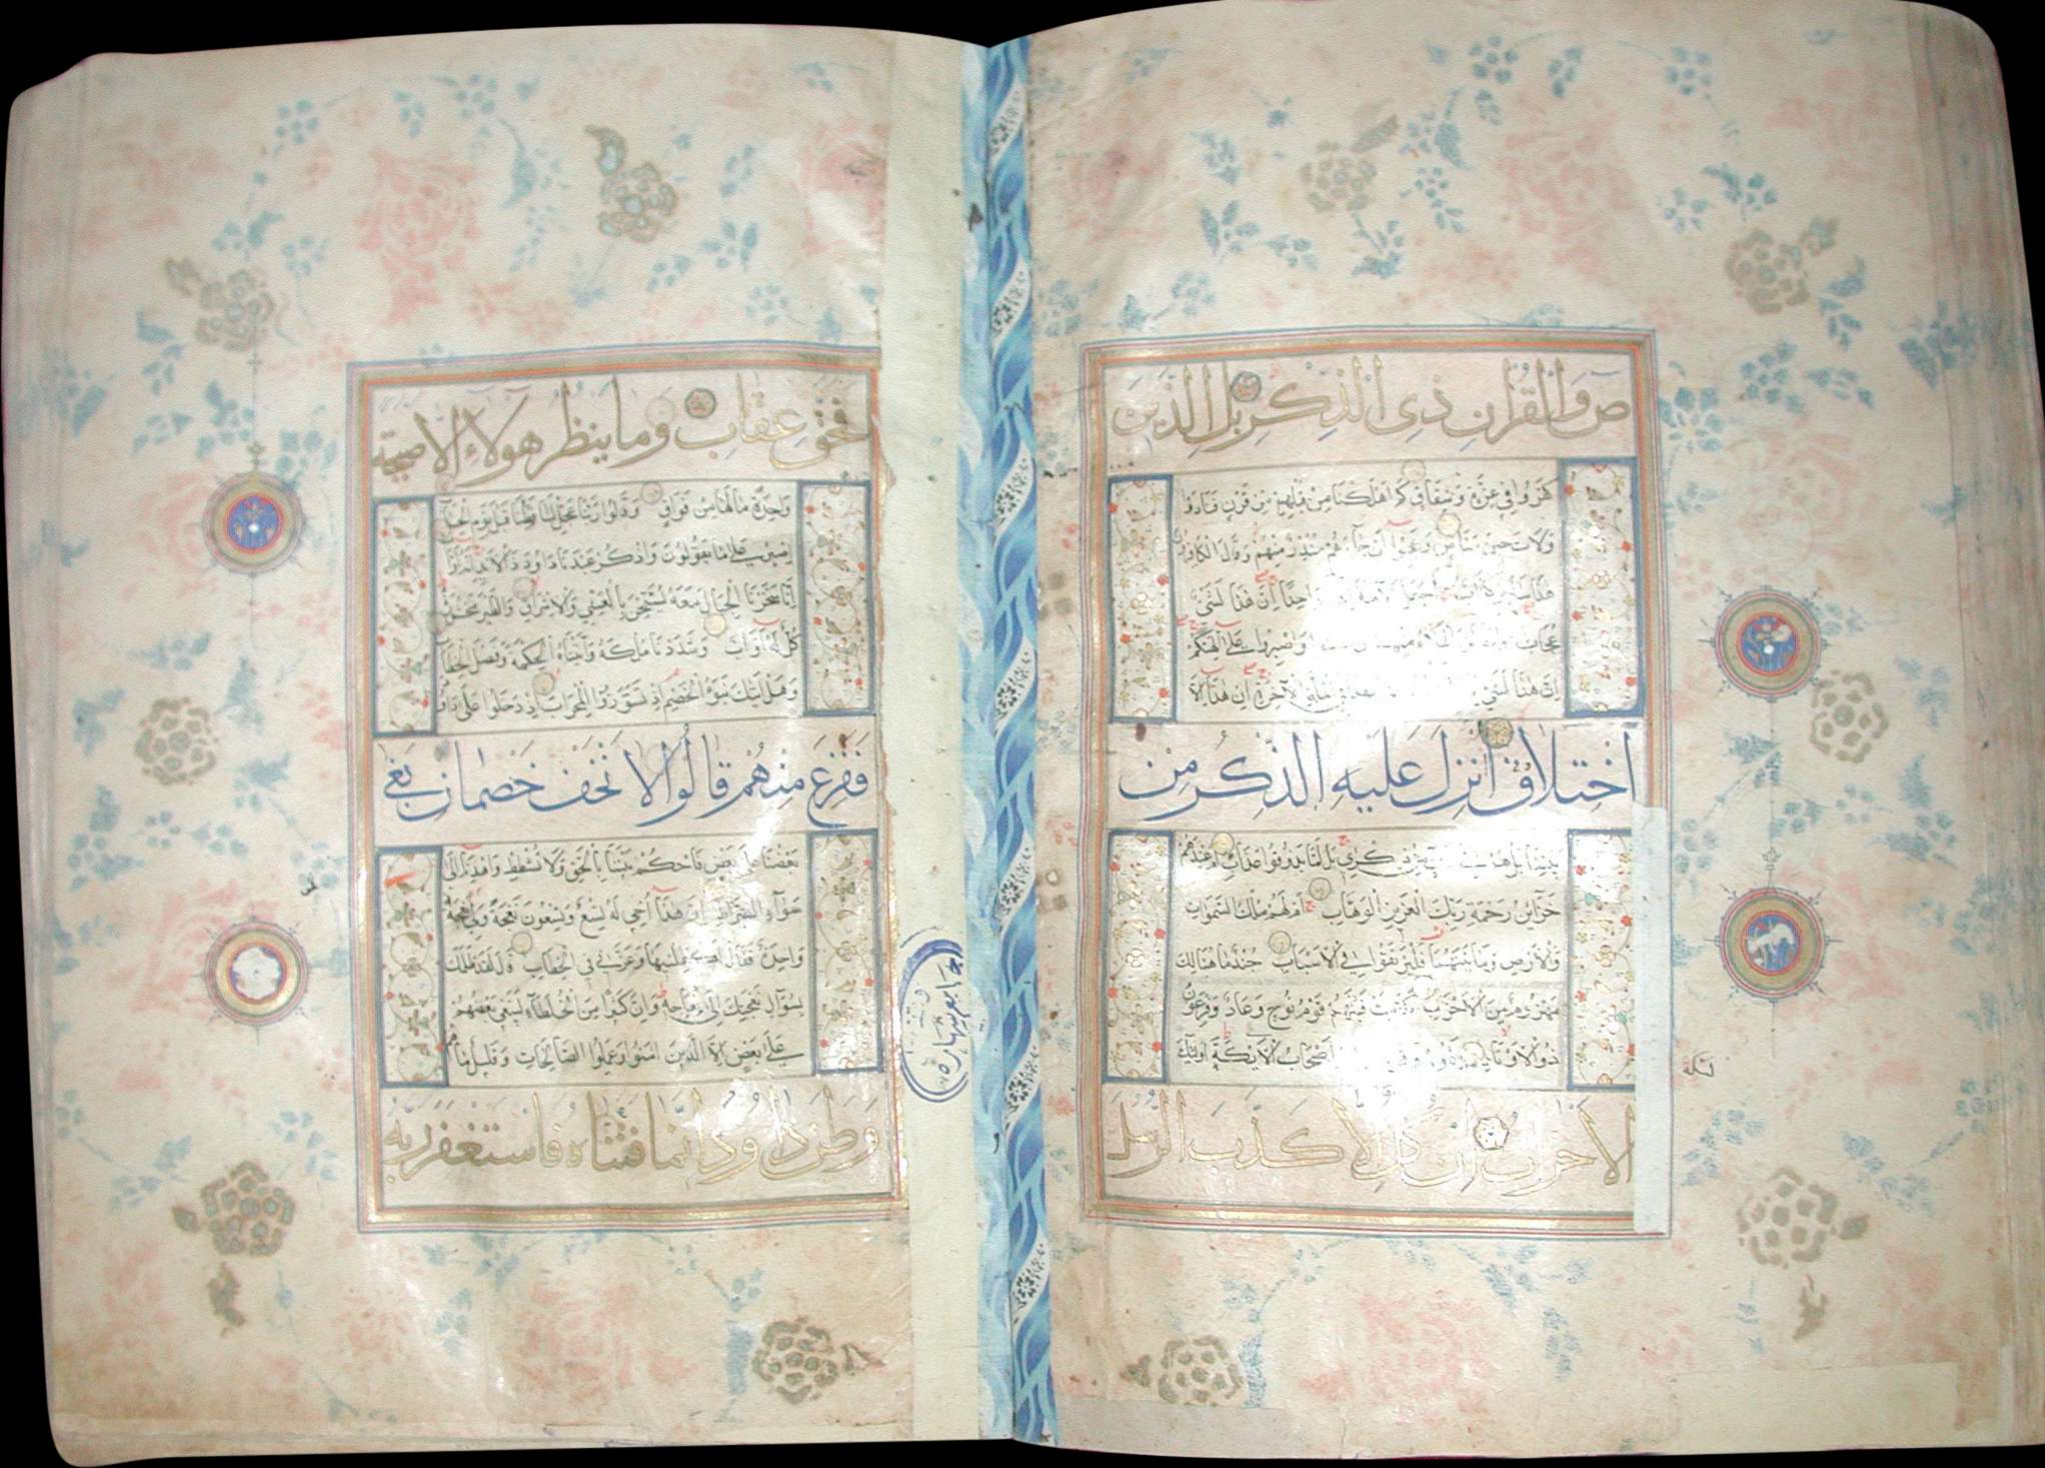 ص وَالْقُرْانِ ذِى الذِّكْرِ بَلِ الَّذِينَ
كَفَرُوا فِي عِزَّةٍ وَشِقَاقٍ كَمْ اَهْلَكْنَا مِنْ قَبْلِهِمْ مِنْ قَرْنٍ فَنَادَوْا
وَلَاتَ حِينَ مَنَاصٍ وَعَجِبُوا اَنْ جَآءَهُمْ مُنْذِرٌ مِنْهُمْ وَقَالَ الْكَافِرُونَ
هٰذَا سَاحِرٌ اَجَعَلَ الْآلِهَةَ وَاحِدًا اِنَّ هٰذَا لَشَيْءٌ
عُجَابٌ وَاصْبِرُوا عَلٰى اٰلِهَتِكُمْ
اِنَّ هٰذَا لَشَيْءٌ الْآخِرَةِ اِنْ هٰذَا اِلَّا
اخْتِلَاقٌ اَنْزِلَ عَلَيْهِ الذِّكْرُ مِنْ
بَيْنِنَا بَلْ هُمْ ذِكْرِي بَلْ لَمَّا يَذُوقُوا عَذَابِ اَمْ عِنْدَهُمْ
خَزَآئِنُ رَحْمَةِ رَبِّكَ الْعَزِيزِ الْوَهَّابِ اَمْ لَهُمْ مُلْكُ السَّمٰوَاتِ
وَالْاَرْضِ وَمَا بَيْنَهُمَا فَلْيَرْتَقُوا فِي الْاَسْبَابِ جُنْدٌ مَا هُنَالِكَ
مَهْزُومٌ مِنَ الْاَحْزَابِ كَذَّبَتْ قَبْلَهُمْ قَوْمُ نُوحٍ وَعَادٌ وَفِرْعَوْنُ
ذُو الْاَوْتَادِ اَصْحَابُ الْاَيْكَةِ اُولٰئِكَ
الْاَحْزَابُ اِنْ كُلٌّ اِلَّا كَذَّبَ الرُّسُلَ
فَحَقَّ عِقَابِ وَمَا يَنْظُرُ هٰولَاءِ اِلَّا صَيْحَةً
وَاحِدَةً مَا لَهَا مِنْ فَوَاقٍ وَقَالُوا رَبَّنَا عَجِّلْ لَنَا قِطَّنَا قَبْلَ يَوْمِ الْحِسَابِ
اِصْبِرْ عَلٰى مَا يَقُولُونَ وَاذْكُرْ عَبْدَنَا دَاوُدَ ذَا الْاَيْدِ اِنَّهُ اَوَّابٌ
اِنَّا سَخَّرْنَا الْجِبَالَ مَعَهُ يُسَبِّحْنَ بِالْعَشِيِّ وَالْاِشْرَاقِ وَالطَّيْرَ مَحْشُورَةً
كُلٌّ لَهُ اَوَّابٌ وَشَدَدْنَا مُلْكَهُ وَآتَيْنَاهُ الْحِكْمَةَ وَفَصْلَ الْخِطَابِ
وَهَلْ اَتٰيكَ نَبَؤُ الْخَصْمِ اِذْ تَسَوَّرُوا الْمِحْرَابَ اِذْ دَخَلُوا عَلٰى دَاوُدَ
فَفَزِعَ مِنْهُمْ قَالُوا لَا تَخَفْ خَصْمَانِ بَغٰى
بَعْضُنَا عَلٰى بَعْضٍ فَاحْكُمْ بَيْنَنَا بِالْحَقِّ وَلَا تُشْطِطْ وَاهْدِنَا اِلٰى
سَوَآءِ الصِّرَاطِ اِنَّ هٰذَا اَخِي لَهُ تِسْعٌ وَتِسْعُونَ نَعْجَةً وَلِيَ نَعْجَةٌ
وَاحِدَةٌ فَقَالَ اَكْفِلْنِيهَا وَعَزَّنِي فِي الْخِطَابِ قَالَ لَقَدْ ظَلَمَكَ
بِسُؤَالِ نَعْجَتِكَ اِلٰى نِعَاجِهِ وَاِنَّ كَثِيرًا مِنَ الْخُلَطَآءِ لَيَبْغِي بَعْضُهُمْ
عَلٰى بَعْضٍ اِلَّا الَّذِينَ اٰمَنُوا وَعَمِلُوا الصَّالِحَاتِ وَقَلِيلٌ مَا هُمْ
وَظَنَّ دَاوُدُ اَنَّمَا فَتَنَّاهُ فَاسْتَغْفَرَ رَبَّهُ